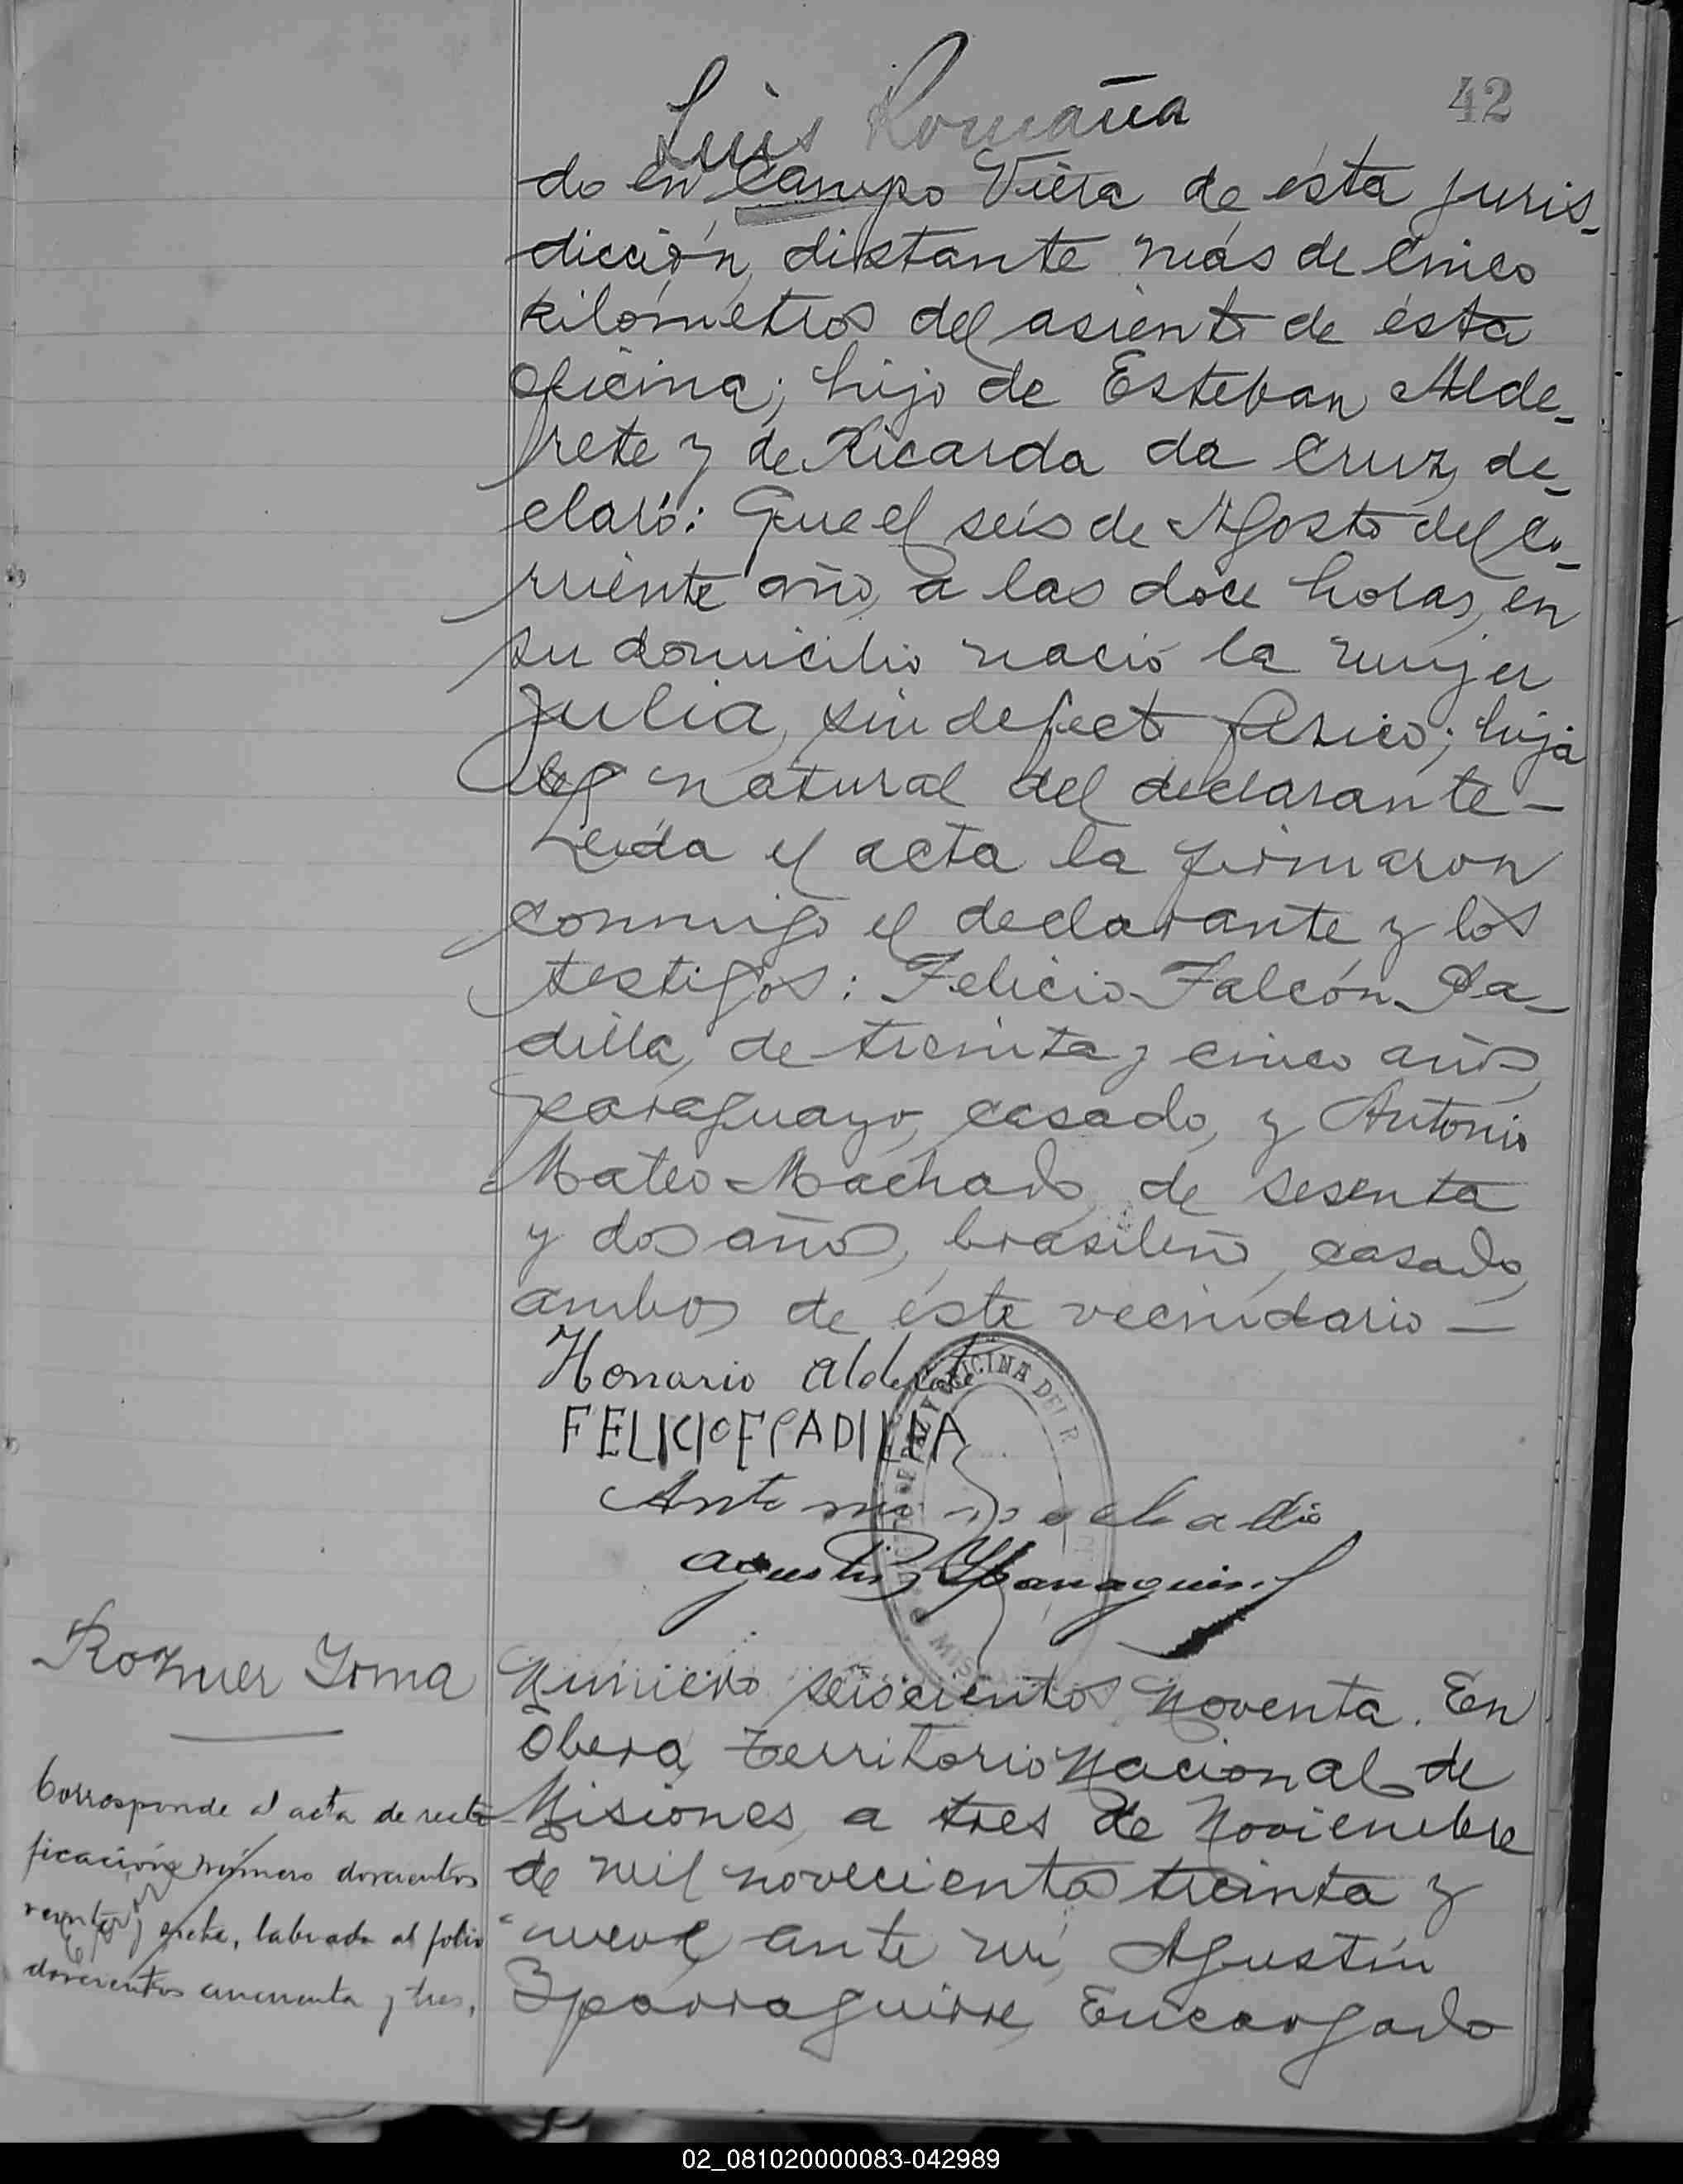 42
Luis Romaña
do en Campo Viera de ésta juris-
dicción, distante más de cinco
kilómetros del asiento de ésta
oficina; hijo de Esteban Alde-
rete y de Ricarda da Cruz, de-
claró: Que el seis de Agosto del co-
rriente año, a las doce horas, en
su domicilio nació la mujer
Julia, sin defecto físico; hija
natural del declarante -
Leída el acta la firmaron
conmigo el declarante y los
testigos: Felicio Falcón Pa-
dilla, de treinta y cinco años,
paraguayo, casado, y Antonio
Mateo Machado, de sesenta
y dos años, brasileño, casado,
ambos de éste vecindario -
Honario Alderete
FELICIO F PADILLA
OFICINA DEL R
MIS
Agustín Yparraguirre
Número seiscientos noventa. En
Oberá, Territorio Nacional de
Misiones, a tres de Noviembre
de mil novecientos treinta y
nueve ante mi, Agustín
Yparraguirre, Encargado
Rozner Irma
Corresponde al acta de recti-
ficación número doscientos
veinte y siete, labrada al folio
doscientos cincuenta y tres,
02_081020000083-042989